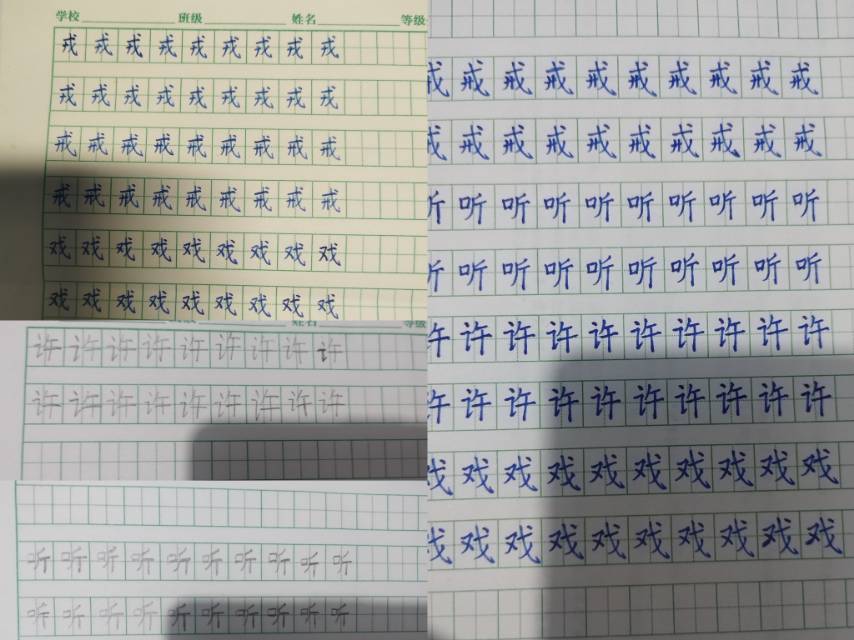 学校 班级 姓名 等级
戎戎戎戎戎戎戎戎戎
戎戎戎戎戎戎戎戎戎
戒戒戒戒戒戒戒戒戒
戒戒戒戒戒戒戒戒戒
戏戏戏戏戏戏戏戏戏
戏戏戏戏戏戏戏戏戏
姓名 等级
许许许许许许许许许
许许许许许许许许许
听听听听听听听听听听
听听听听听听听听听听
戒戒戒戒戒戒戒戒戒戒
戒戒戒戒戒戒戒戒戒戒
听听听听听听听听听听
听听听听听听听听听听
许许许许许许许许许许
许许许许许许许许许许
戏戏戏戏戏戏戏戏戏戏
戏戏戏戏戏戏戏戏戏戏